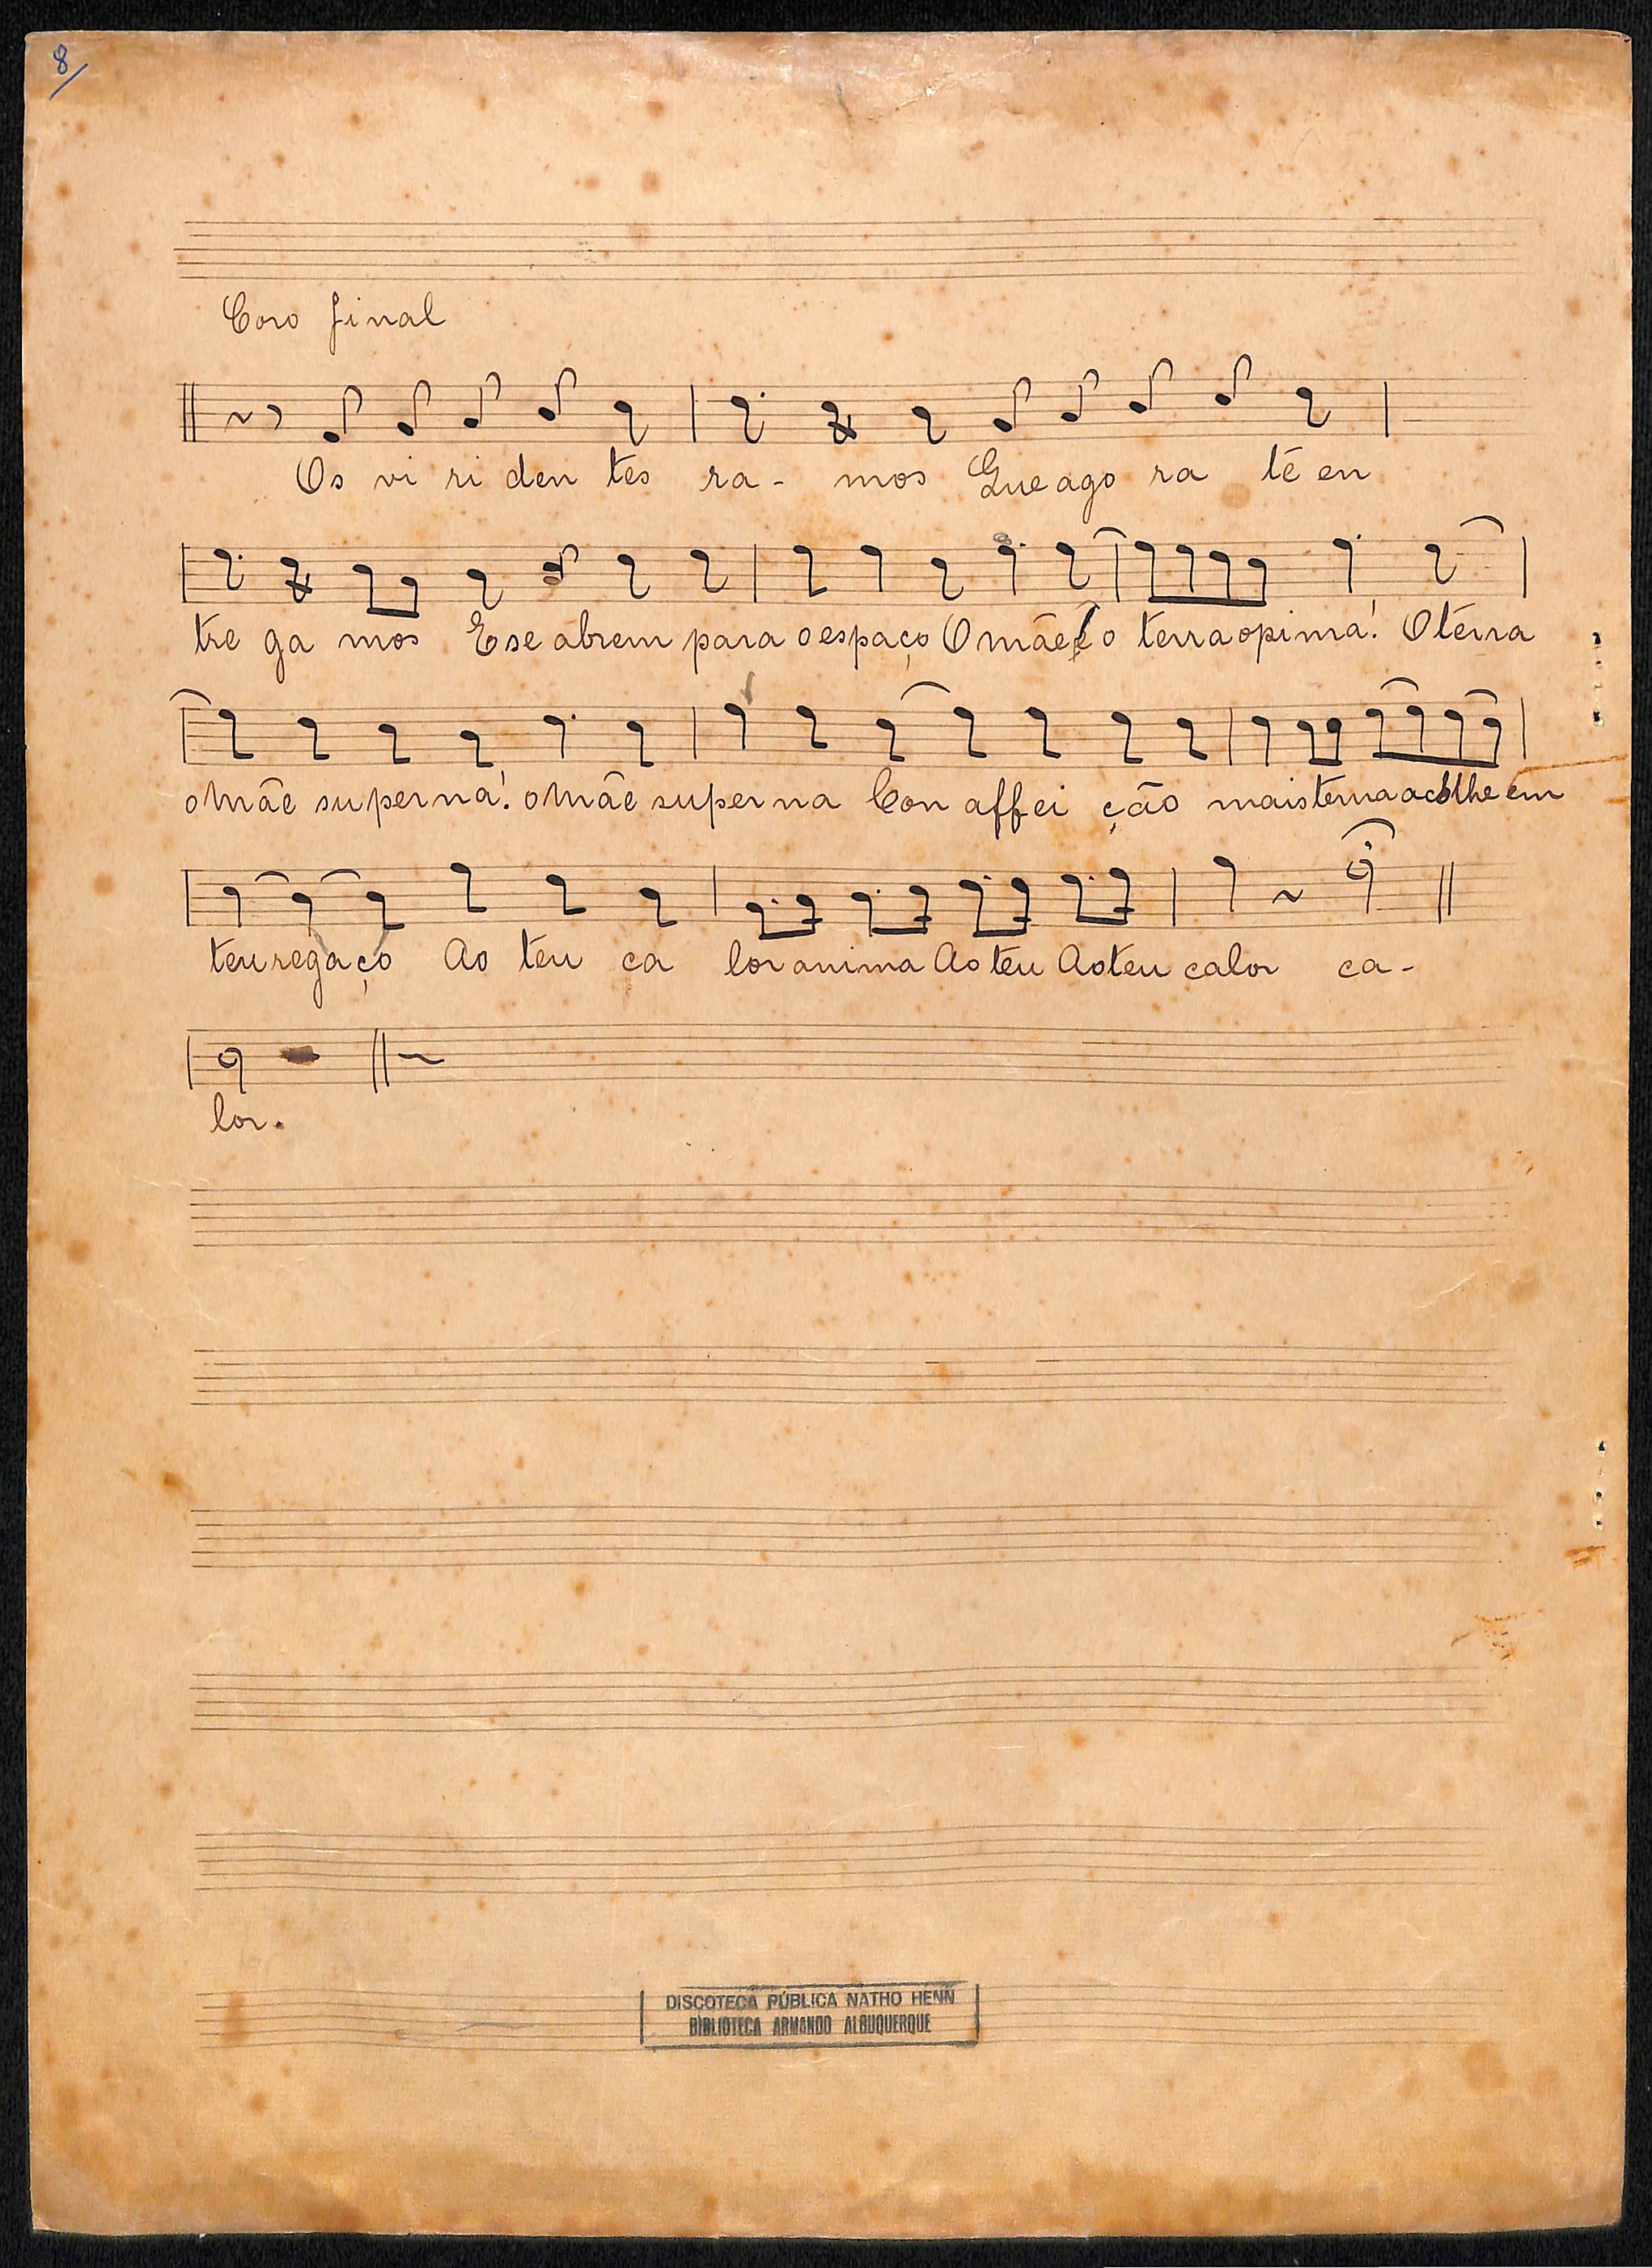 8
Coro final
Os vi ri den tes ra - mos Que ago ra té en
tre ga mos E se abrem para o espaço O mãe o terra opima! O terra
o Mãe superna! o Mãe superna Con affei ção mais terna acolhe em
teu regaço Ao teu ca lor anima Ao teu Ao teu calor ca -
lor.
DISCOTECA PÚBLICA NATHO HENN
BIBLIOTECA ARMANDO ALBUQUERQUE